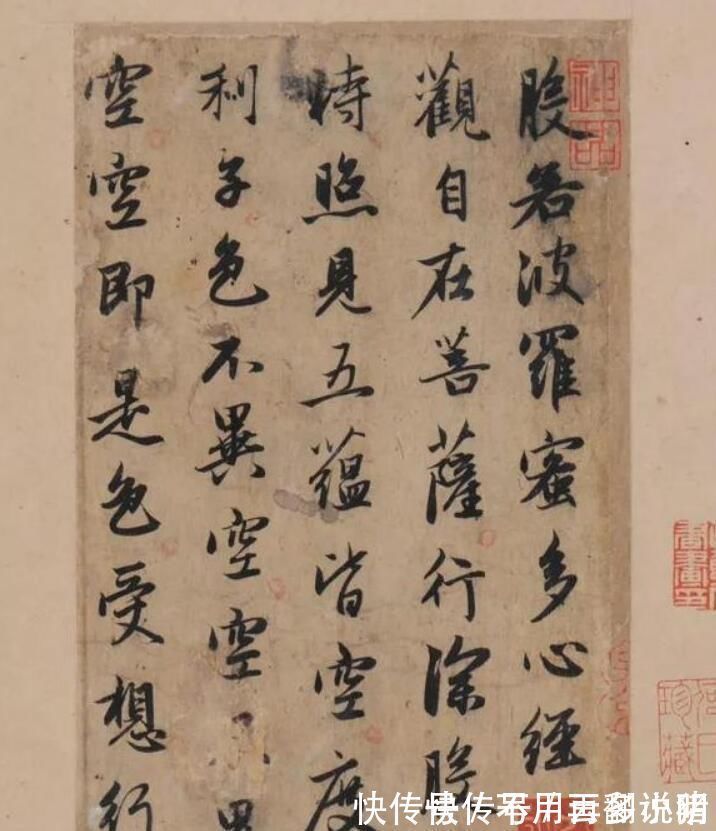 般若波羅蜜多心經
觀自在菩薩行深般
時照見五蘊皆空度
利子色不異空空不異
空空即是色受想行
神品
珍藏
快传